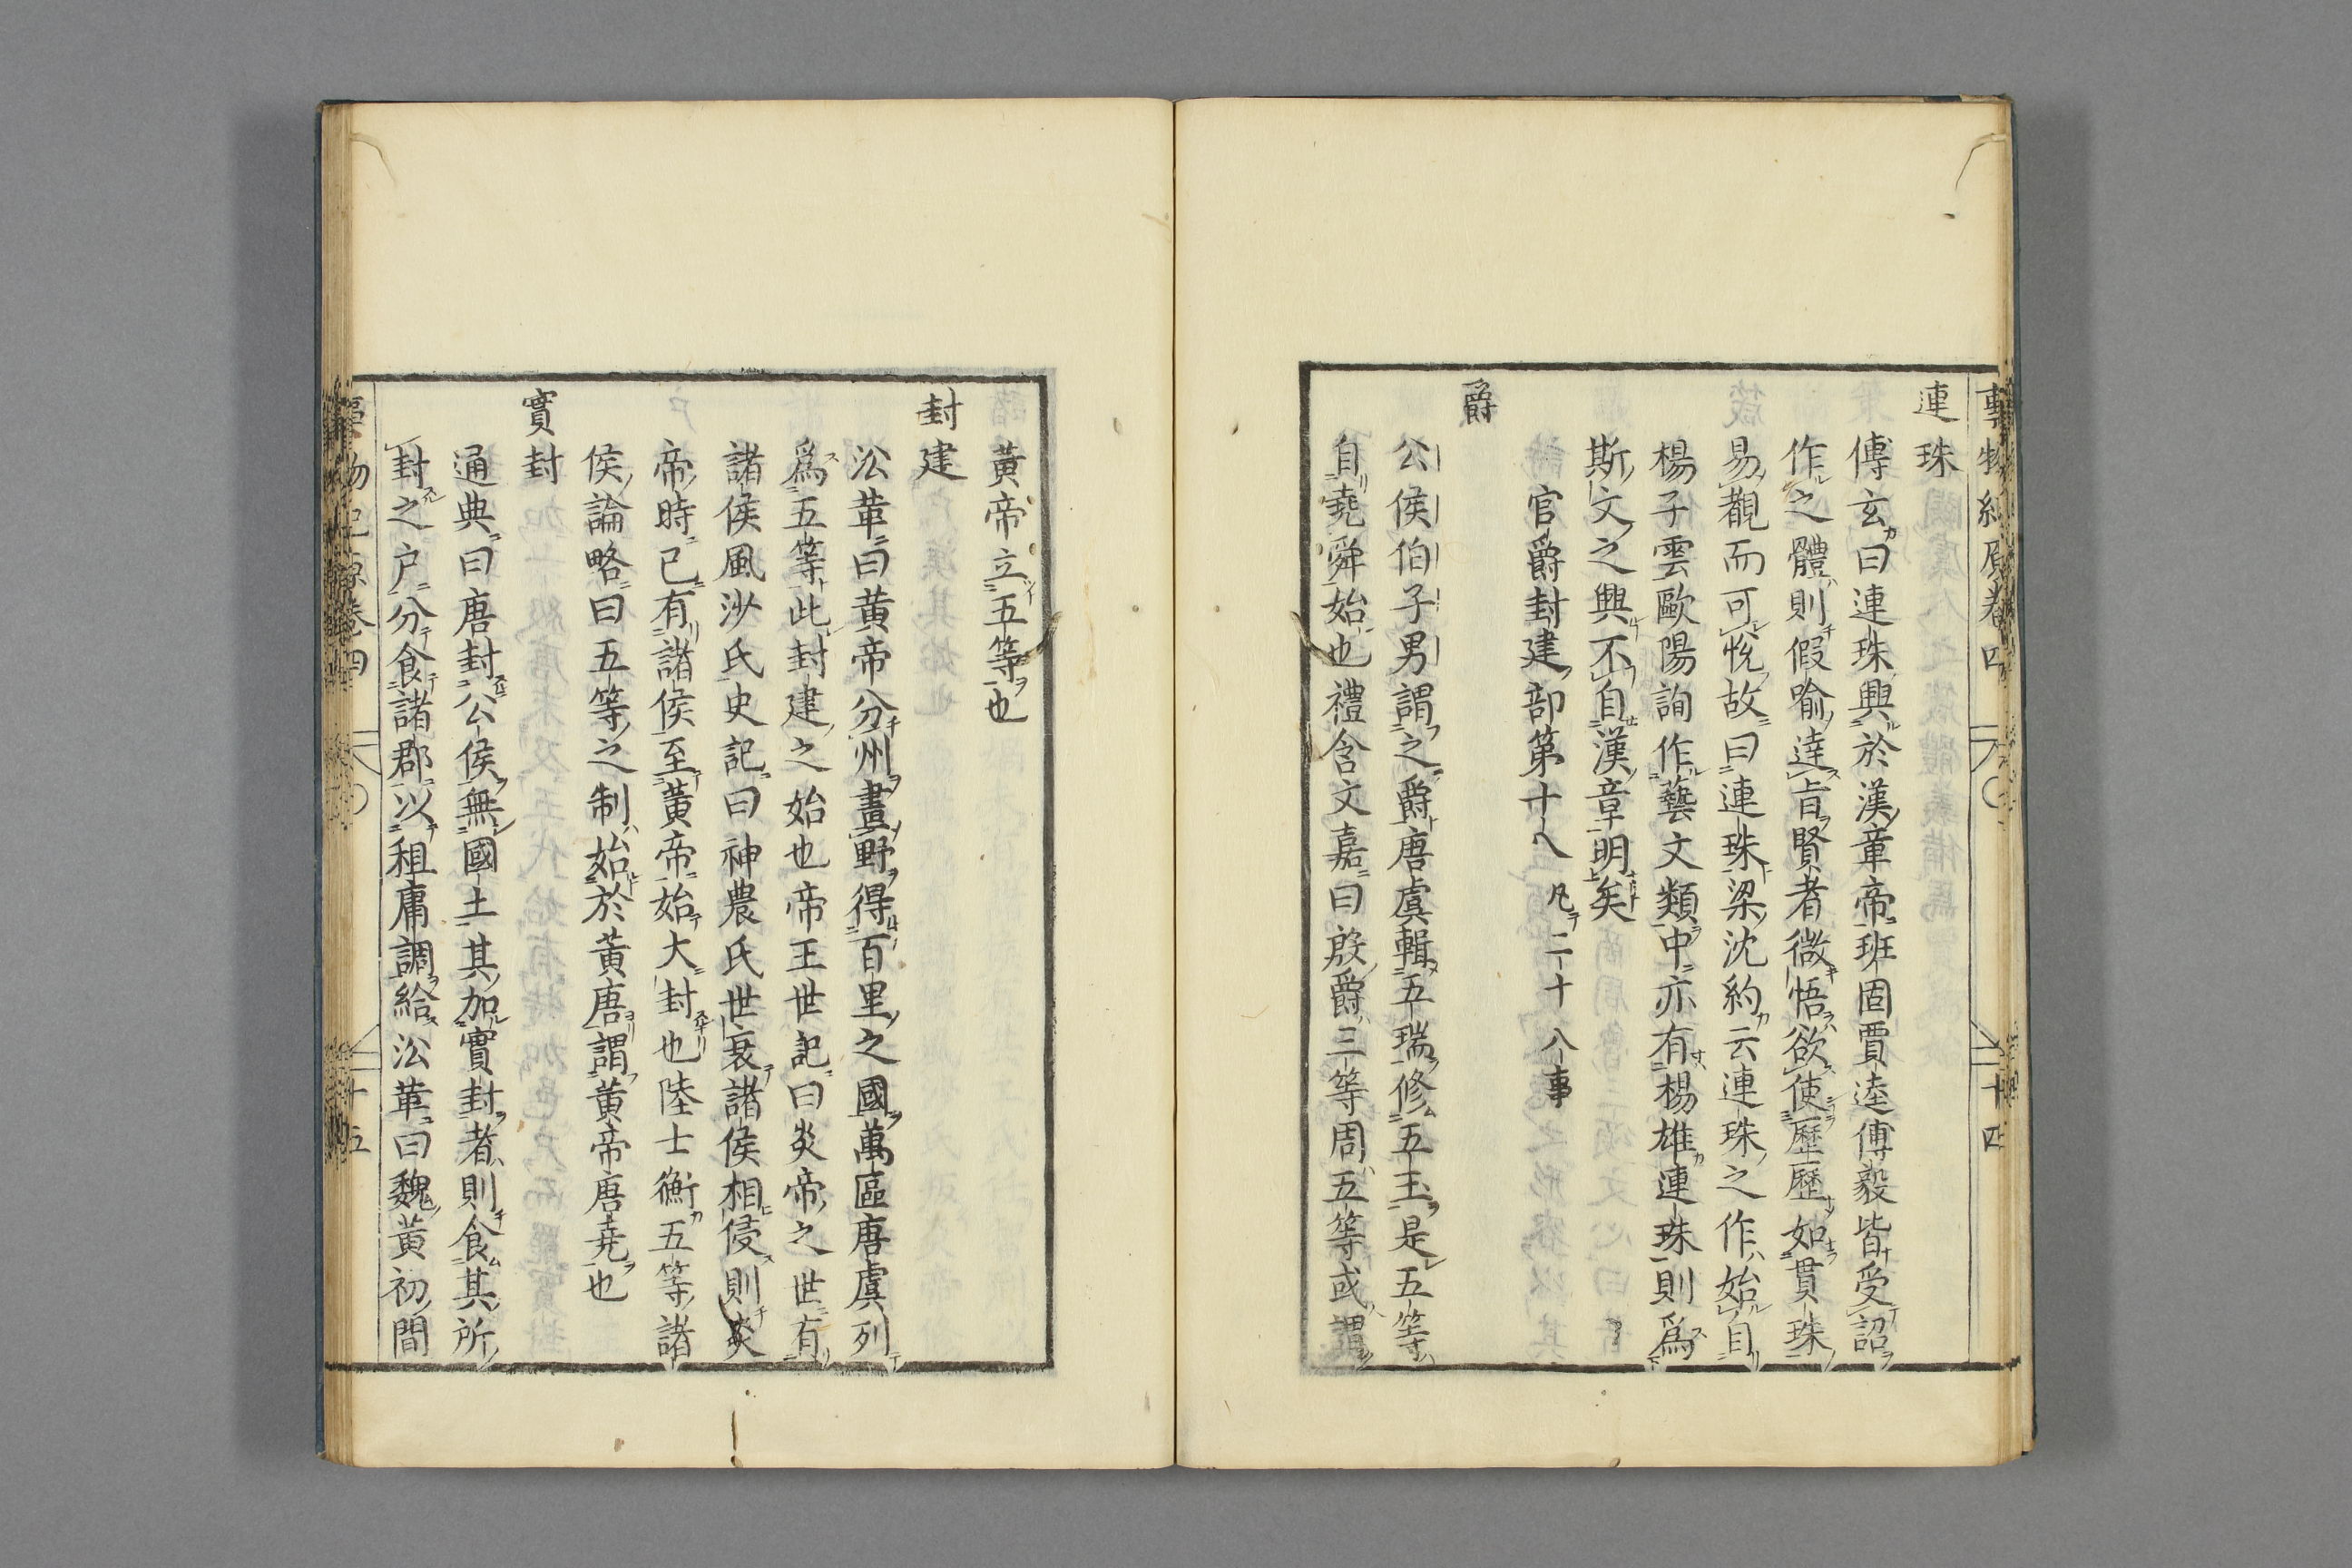 事物紀原卷四 十四
連珠
傅玄曰連珠興於漢章帝班固賈逵傅毅皆受詔
作之體則假喻達旨賢者微悟欲使歷歷如貫珠
易覩而可悅故曰連珠梁沈約云連珠之作始自
楊子雲歐陽詢作藝文類中亦有楊雄連珠則爲
斯文之興不自漢章明矣
官爵封建部第十八 凡二十八事
爵
公侯伯子男謂之爵唐虞輯五瑞修五玉是五等
自堯舜始也禮含文嘉曰殷爵三等周五等或謂
黃帝立五等也
封建
㳂革曰黃帝分州畫野得百里之國萬區唐虞列
爲五等此封建之始也帝王世記曰炎帝之世有
諸侯風沙氏史記曰神農氏世衰諸侯相侵則炎
帝時已有諸侯至黃帝始大封也陸士衡五等諸
侯論略曰五等之制始於黃唐謂黃帝唐堯也
實封
通典曰唐封公侯無國土其加實封者則食其所
封之户分食諸郡以租庸調給㳂革曰魏黃初間
事物紀原卷四 十五